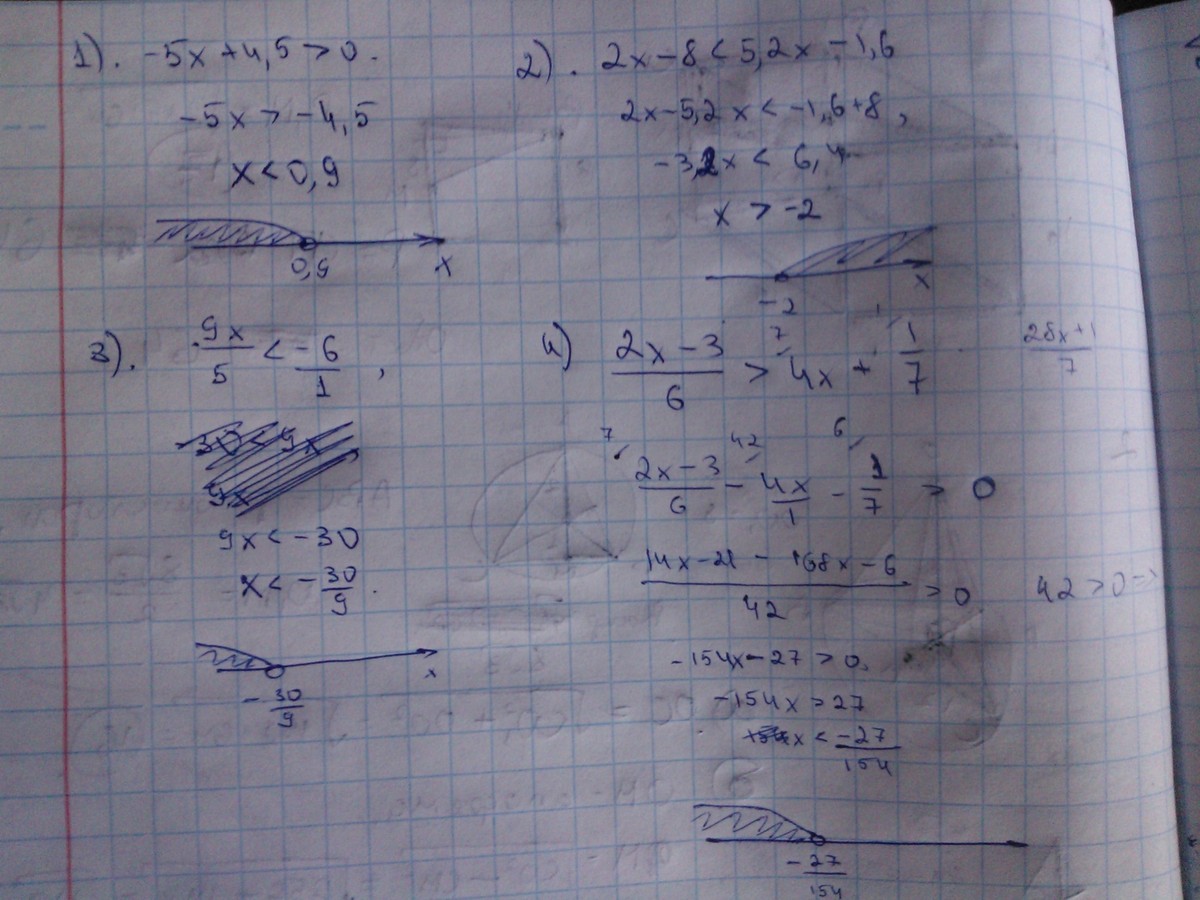 1). -5x+4,5>0.
-5x>-4,5
x<0,9
0,9 x
2). 2x-8<5,2x-1,6
2x-5,2x<-1,6+8,
-3,2x<6,4
x>-2
-2 x
3). 9x/5 < -6/1,
30<9x
9x
9x<-30
x<-30/9.
-30/9 x
4) (2x-3)/6 > 4x + 1/7
7
(28x+1)/7
7 42 6
(2x-3)/6 - 4x/1 - 1/7 > 0
(14x-21-168x-6)/42 > 0
42>0 =>
-154x-27>0,
-154x>27
x < -27/154
-27/154